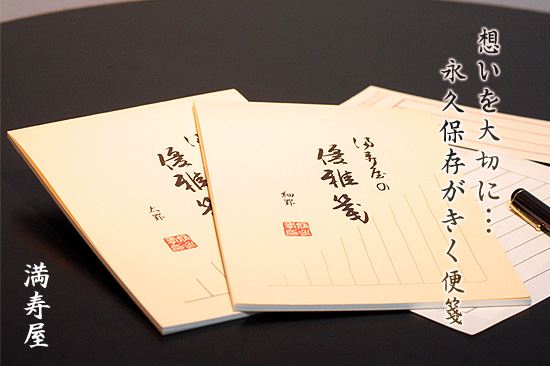 想いを大切に…
永久保存がきく便箋
満寿屋の
優雅箋
細罫
満寿屋の
優雅箋
太罫
満寿屋